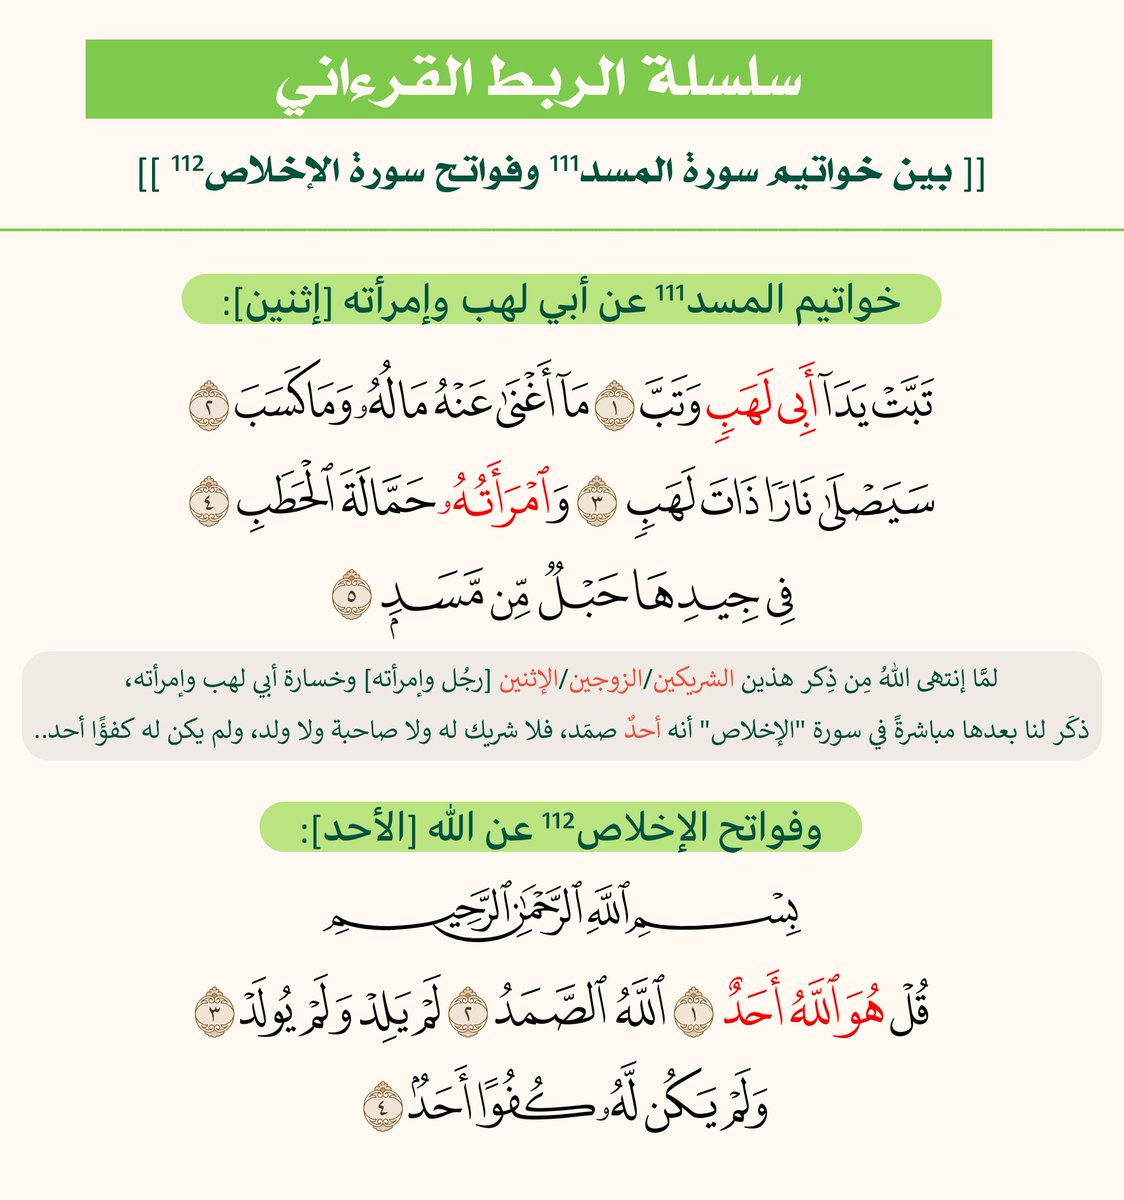 سلسلة الربط القرءاني
[[ بين خواتيم سورة المسد¹¹¹ وفواتح سورة الإخلاص¹¹² ]]
خواتيم المسد¹¹¹ عن أبي لهب وإمرأته [إثنين]:
تَبَّتۡ يَدَآ أَبِي لَهَبٖ وَتَبَّ ١ مَآ أَغۡنَىٰ عَنۡهُ مَالُهُۥ وَمَا كَسَبَ ٢
سَيَصۡلَىٰ نَارٗا ذَاتَ لَهَبٖ ٣ وَٱمۡرَأَتُهُۥ حَمَّالَةَ ٱلۡحَطَبِ ٤
فِي جِيدِهَا حَبۡلٞ مِّن مَّسَدِۭ ٥
لمَّا إنتهى اللهُ مِن ذِكر هذين الشريكين/الزوجين/الإثنين [رجُل وإمرأته] وخسارة أبي لهب وإمرأته،
ذكَر لنا بعدها مباشرةً في سورة "الإخلاص" أنه أحدٌ صمَد، فلا شريك له ولا صاحبة ولا ولد، ولم يكن له كفؤًا أحد..
وفواتح الإخلاص¹¹² عن الله [الأحد]:
بِسۡمِ ٱللَّهِ ٱلرَّحۡمَٰنِ ٱلرَّحِيمِ
قُلۡ هُوَ ٱللَّهُ أَحَدٌ ١ ٱللَّهُ ٱلصَّمَدُ ٢ لَمۡ يَلِدۡ وَلَمۡ يُولَدۡ ٣
وَلَمۡ يَكُن لَّهُۥ كُفُوًا أَحَدُۢ ٤